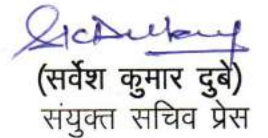 (सर्वेश कुमार दुबे)
संयुक्त सचिव प्रेस